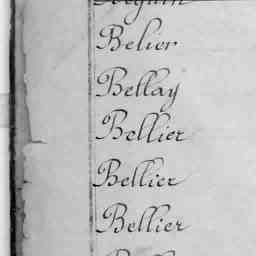 Béguin
Belier
Bellay
Bellier
Bellier
Bellier